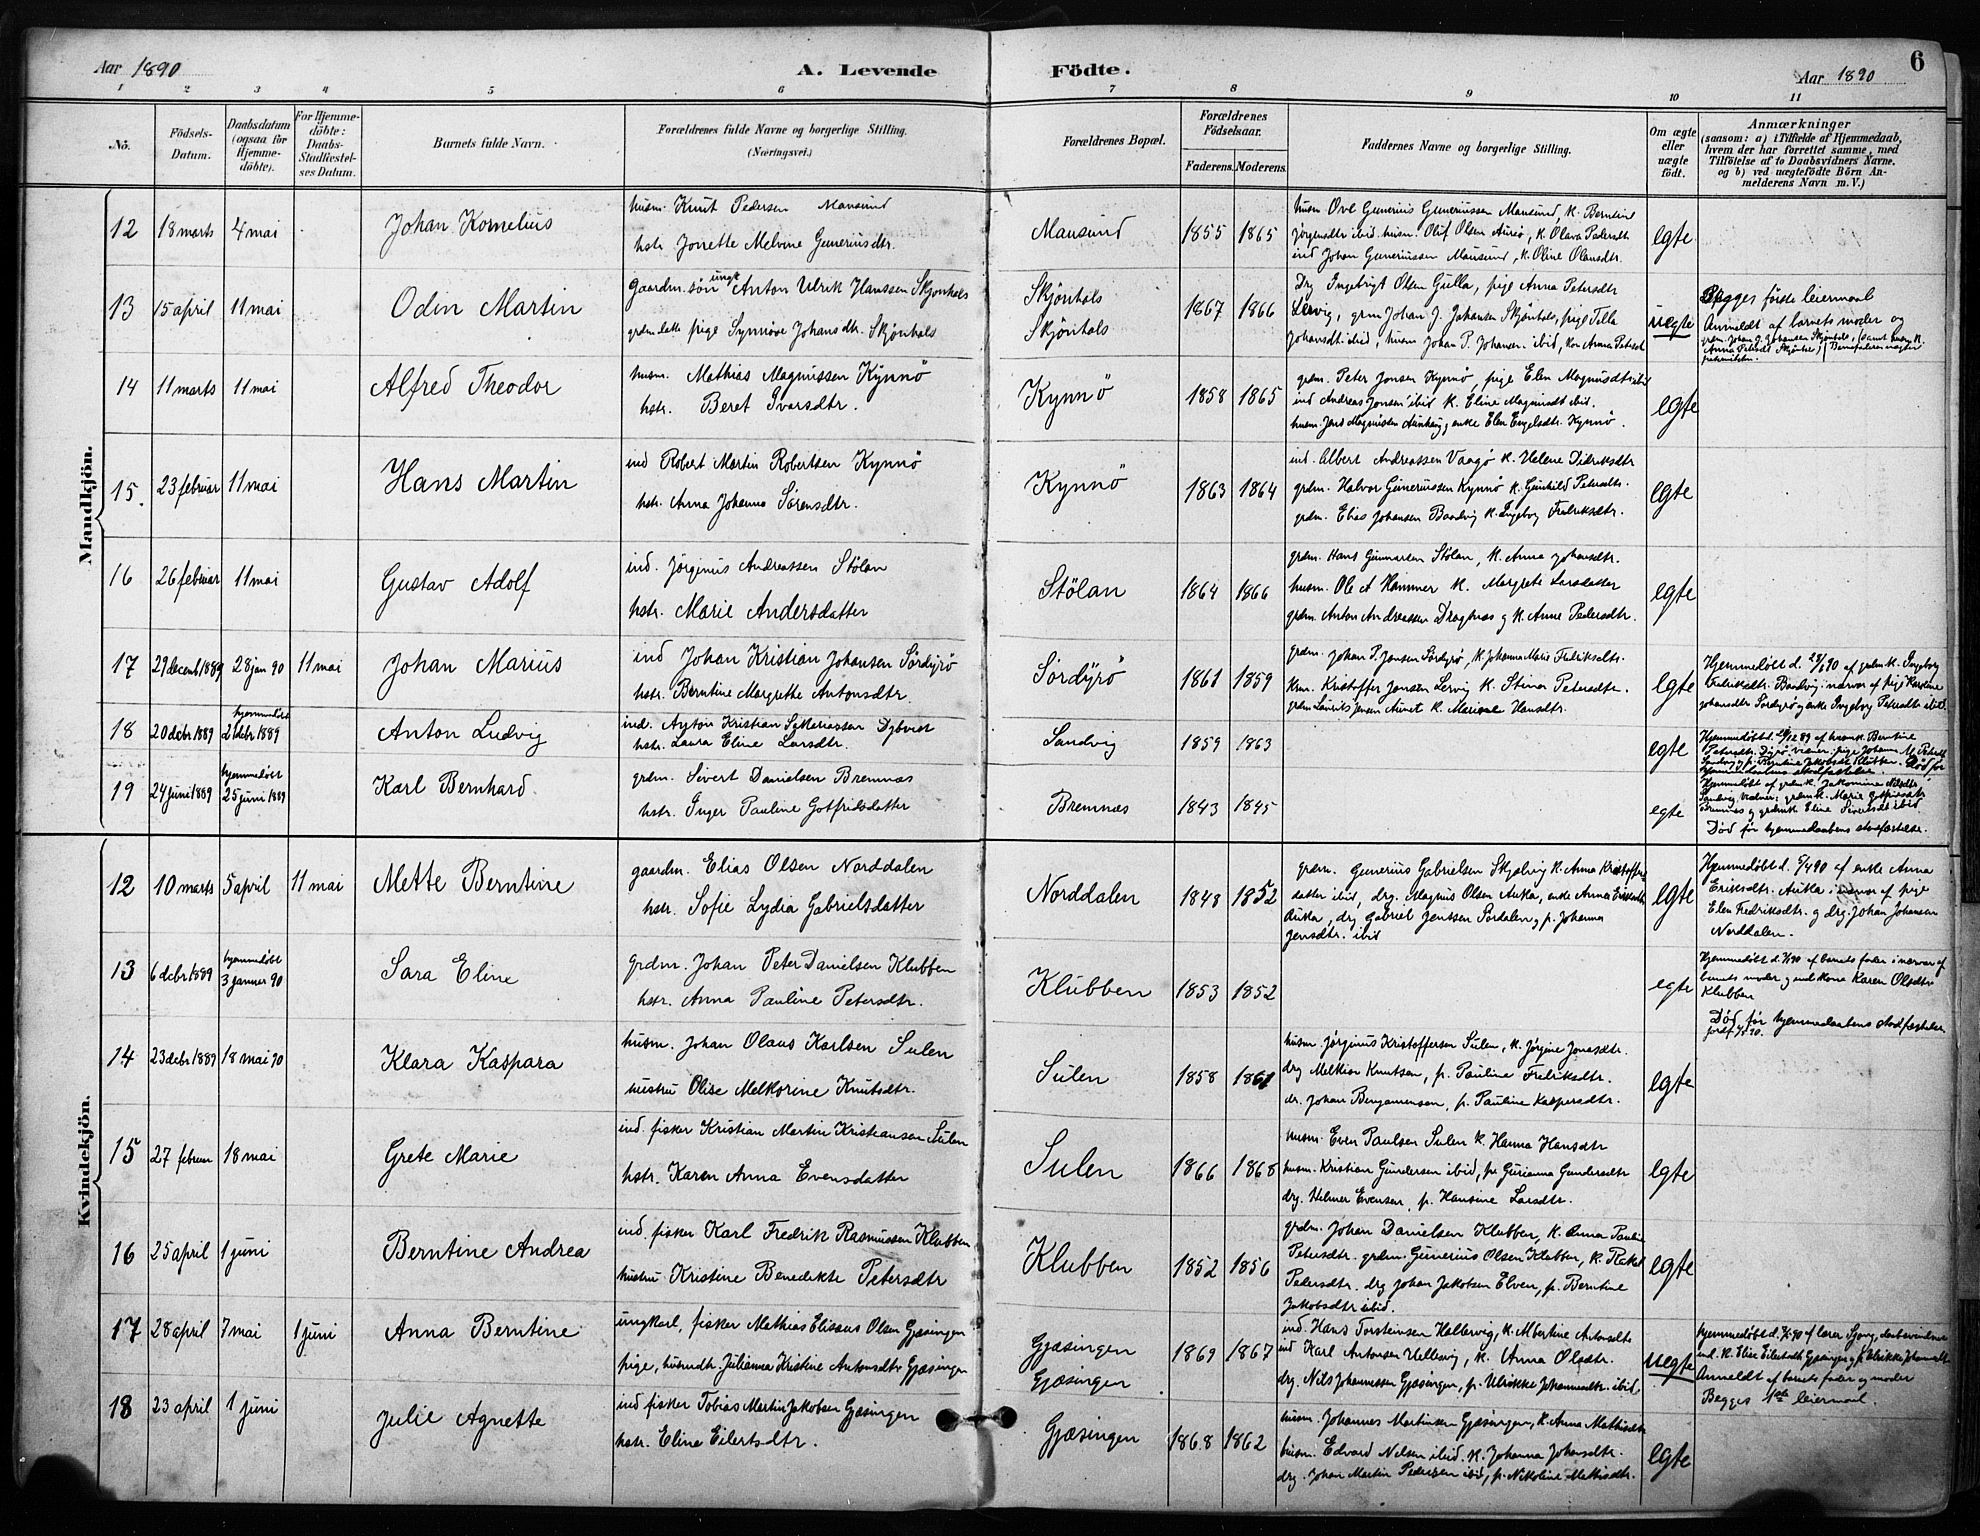 Aar 1890
A. Levende
Födte.
6
Aar 1890
1 2 3 4 5 6 7 8 9 10 11
No.
Födsels-Datum.
Daabsdatum (ogsaa for Hjemme-döbte).
For Hjemme-döbte: Daabs-Stadfæstel-ses Datum.
Barnets fulde Navn.
Forældrenes fulde Navne og borgerlige Stilling. (Næringsvei.)
Forældrenes Bopæl.
Forældrenes Födselsaar.
Faderens. Moderens.
Faddernes Navne og borgerlige Stilling.
Om ægte eller uægte födt.
Anmærkninger
(saasom: a) i Tilfælde af Hjemmedaab,
hvem der har forrettet samme, med
Tilföielse af to Daabsvidners Navne,
og b) ved uægtefödte Börn An-
melderens Navn m. V.)
Mandkjön.
12 18 marts 4 mai Johan Kornelius
husm. Knut Pedersen Mausund
hstr. Jonette Melvine Guneriusdtr.
Mausund 1855 1865
husm Ove Gunerius Guneriussen Mausund, k. Berntine
Jörgensdtr ibid. husm. Oluf Olsen Aursö, k. Olava Pedersdtr
ind Johan Guneriussen Mausund, k. Oline Olausdtr.
egte
13 15 april 11 mai Odin Martin
gaardm. sön ungk Anton Ulrik Hanssen Skjönhals
grdm. dette pige Synnöve Johansdtr. Skjönhals
Skjönhals
Skjönhals
1867 1866
Drg Ingebrigt Olsen Gulla, pige Anna Petersdtr
Lervig, grm Johan J. Johansen Skjönhals, pige Tilla
Johansdtr ibid, husm Johan P. Johansen ibid, kon Anna Petersdt
uegte
Begges förste leiermaal
Anmeldt af barnets moder og
grdm. Johan J. Johansen Skjönhals
14 11 marts 11 mai Alfred Theodor
husm. Mathias Magnussen Kynnö
hstr. Beret Ivarsdtr.
Kynnö 1858 1865
grdm. Peter Jonsen Kynnö, pige Elen Magnusdtr ibid
ind Andreas Jonsen ibid k. Eline Magnusdt ibid.
husm. Jens Magnussen enke Elen Engelsdtr. Kynnö.
egte
15. 23 februar 11 mai Hans Martin
ind Robert Martin Robertsen Kynnö
hstr. Anna Johanna Sörensdtr.
Kynnö 1863 1864
ind. Albert Andreassen Vaagö k. Helene Didriksdtr
grdm. Halvor Guneriussen Kynnö k. Gunhild Petersdtr.
grdm. Elias Johansen Baadvig k. Ingeborg Fredriksdtr.
egte
16 26 februar 11 mai Gustav Adolf
ind. Jörginus Andreassen Stölan
hstr. Marie Andersdatter
Stölan 1864 1866
grdm. Hans Gunnarsen Stölan, k. Anna Johansdtr.
husm. Ole A Hammer k. Margrete Larsdatter
grdm. Anton Andreassen Dragsnes og k. Anne Pedersdtr.
egte
17 29 decemb 1889 28 jan 90 11 mai Johan Marius
ind Johan Kristian Johansen Sördyrö
hstr. Berntine Margrethe Antonsdtr.
Sördyrö 1861 1859
grdm. Johan P. Jonsen Sördyrö, k. Johanna Marie Fredriksdtr.
Krm. Kristoffer Jonsen Lervig k. Stina Petersdtr.
grdm Laurits Jensen Aunet k. Hansdtr.
egte
Hjemmedöbt d. 28/1 90 af grdm k. Ingeborg
Fredriksdtr. Baadvig i nærvær af pige Karoline
Johansdtr Sördyrö og enke Ingeborg Petersdtr ibid.
18 20 dcbr 1889 hjemmedöbt 21 dcbr 1889 Anton Ludvig
ind. Anton Kristian Dybvik
hstr. Laura Eline Larsdtr.
Sandvig 1859 1863
egte
19 24 juni 1889 hjemmedöbt 25 juni 1889 Karl Bernhard.
grdm. Sivert Danielsen Bremnæs
hstr. Inger Pauline Gotfridsdatter
Bremnæs 1843 1845
egte
Död för hjemmedaabens stadfæstelse.
Kvindekjön.
12 10 marts 5 april 11 mai Mette Berntine
gaardm. Elias Olsen Norddalen
hstr. Sofie Lydia Gabrielsdatter
Norddalen 1848 1852
grdm. Gunerius Gabrielsen Skjelvig k. Anna Kristoffers-
datter ibid, drg. Magnus Olsen Auka, enke Anna Eriksdtr
Auka, drg Gabriel Jentsen Sördalen og p. Johanna
Jensdtr. ibid
egte
Hjemmedöbt d. 5/4 90 af enke Anna
Eriksdtr. Auka i nærvær af pige
Elen Fredriksdtr. og drg. Johan Johansen
Norddalen.
13 6 dcbr 1889 hjemmedöbt 3 januar 90 Sara Eline
grdm. Johan Peter Danielsen Klubben
hstr. Anna Pauline Petersdtr.
Klubben 1853 1852
egte
Hjemmedöbt d. 3/1 90 af barnets fader i nærvær af
barnets moder og ind kone Karen Olsdtr
Klubben
Död för hjemmedaabens stadfæstelse.
14 23 dcbr 1889 18 mai 90 Klara Kaspara
husm. Johan Olaus Karlsen Sulen
hustru Olise Melkorine Knutsdtr.
Sulen 1858 1861
husm. Jörginus Kristoffersen Sulen, k. Jörgine Jonasdtr.
drg Melkior Knutsen, p. Pauline Fredriksdtr.
dr. Johan Benjaminsen, p. Pauline Kaspersdtr.
egte
15 27 februar 18 mai Grete Marie
ind. fisker Kristian Martin Kristiansen Sulen
hstr. Karen Anna Evensdatter
Sulen 1866 1868
husm. Even Paulsen Sulen k. Hanna Hansdtr
husm. Kristian Gundersen ibid, p. Gurianna Gundersdtr
drg. Helmer Evensen, p. Hansine Larsdtr.
egte
16 25 april 1 juni Berntine Andrea
ind. fisker Karl Fredrik Rasmussen Klubben
hustru Kristine Benedikte Petersdtr
Klubben 1852 1856
grdm. Johan Danielsen Klubben, k. Anna Pauline
Petersdtr. grdm. Gunerius Olsen Klubben, k. Rakel
Pedersdtr. drg Johan Jakobsen Elven, p. Berntine
Jakobsdtr ibid.
egte
17 28 april 7 mai 1 juni Anna Berntine
ungkarl, fisker Mathias Eliseus Olsen Gjæsingen
pige, husmdtr. Julianna Kristine Antonsdtr Gjæsingen
Gjæsingen
Gjæsingen
1869 1867
ind. Hans Torsteinsen Hallervig, k. Albertine Antonsdtr
ind Karl Antonsen Vellesvig, k. Anna Olsdtr.
drg. Nils Johannessen Gjæsingen, p. Ulrikke Johannesdtr. ibid
uegte
hjemmedöbt d. 7/5 90 af lærer Sjong, daabsvidner
ind. k. Elise Eilertsdtr Gjæsingen og p. Ulrikke Johannesdtr
Anmeldt af barnets fader og moder
Begges 1ste leiermaal.
18 23 april 1 juni Julie Agnette
ind fisker Tobias Martin Jakobsen Gjæsingen
hstr. Eline Eilertsdtr.
Gjæsingen 1868 1862
husm. Johannes Martinsen Gjæsingen, k. Anna Mathisdtr
husm. Edvard Nilsen ibid. k. Johanna Johansdtr.
drg. Johan Martin Pedersen ibid, p. Nikoline Mathisdtr.
egte